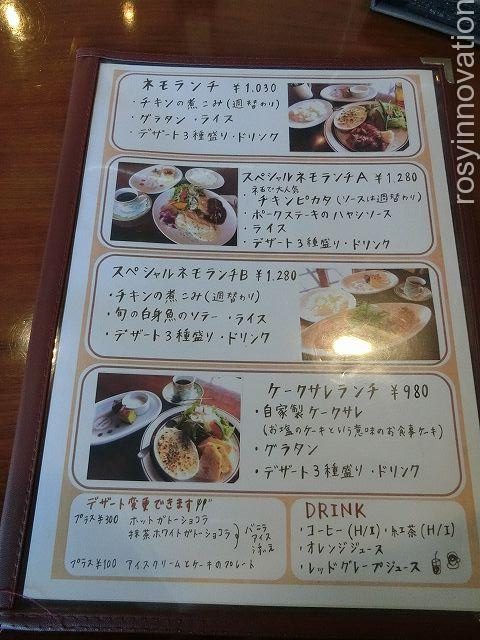 ネモランチ ￥1,030
・チキンの煮こみ(週替わり)
・グラタン ・ライス
・デザート3種盛り・ドリンク
スペシャルネモランチA ￥1,280
ネモで大人気
・チキンピカタ(ソースは週替わり)
・ポークステーキのハヤシソース
・ライス
・デザート3種盛り・ドリンク
スペシャルネモランチB ￥1,280
・チキンの煮こみ(週替わり)
・旬の白身魚のソテー ・ライス
・デザート3種盛り ・ドリンク
ケークサレランチ ￥980
・自家製ケークサレ
(お塩のケーキという意味のお食事ケーキ)
・グラタン
・デザート3種盛り ・ドリンク
デザート変更できます
プラス￥300 ホットガトーショコラ
抹茶ホワイトガトーショコラ
バニラ
アイス
添え
プラス￥100 アイスクリームとケーキのプレート
DRINK
・コーヒー(H/I)・紅茶(H/I)
・オレンジジュース
・レッドグレープジュース
rosyinnovation